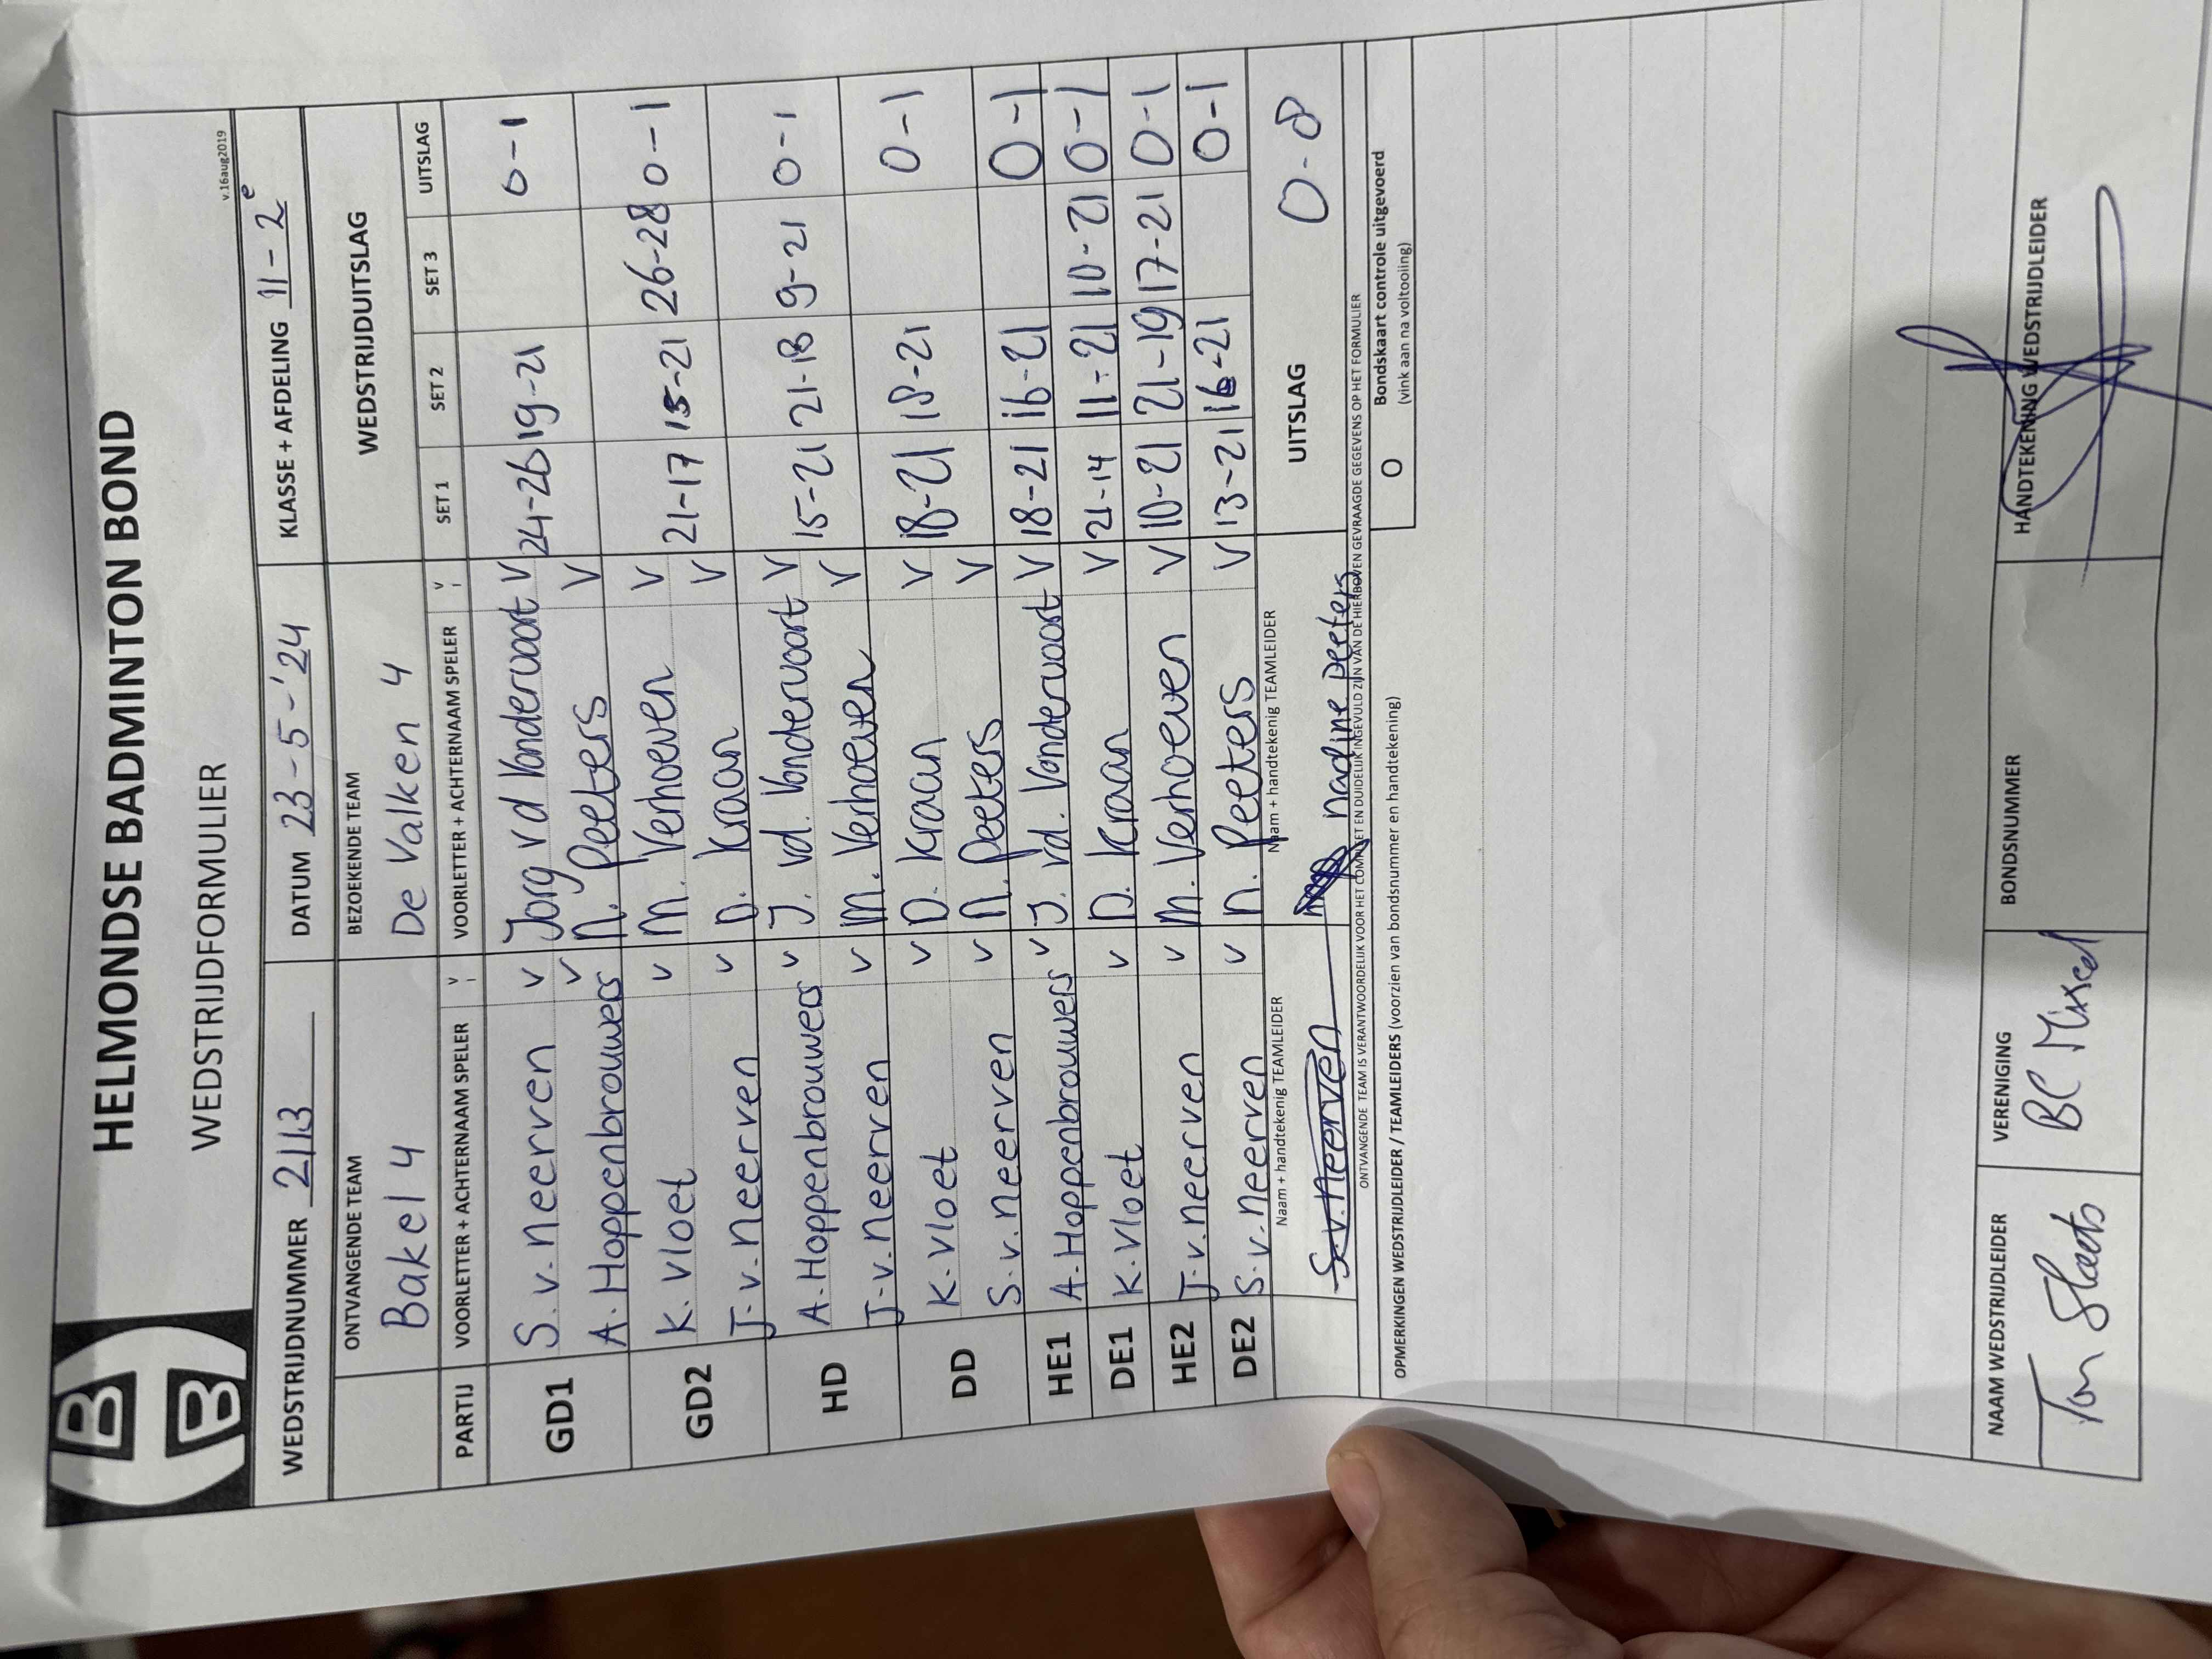 HELMONDSE BADMINTON BOND
WEDSTRIJDFORMULIER
v.16aug2019
WEDSTRIJDNUMMER 2113 DATUM 23-5-'24 KLASSE + AFDELING 11-2e
ONTVANGENDE TEAM BEZOEKENDE TEAM WEDSTRIJDUITSLAG
Bakel 4 De Valken 4
PARTIJ VOORLETTER + ACHTERNAAM SPELER v VOORLETTER + ACHTERNAAM SPELER v SET 1 SET 2 SET 3 UITSLAG
GD1 S.v.neerven v Jorg vd Vondervoort v 24-26 19-21 0-1
A.Hoppenbrouwers v N. Peeters v
GD2 K.Vloet v M. Verhoeven v 21-17 15-21 26-28 0-1
J.v.neerven v D. Kraan v
HD A.Hoppenbrouwers v J. vd. Vondervoort v 15-21 21-18 9-21 0-1
J.v.neerven v M. Verhoeven v
DD K.Vloet v D. Kraan v 18-21 18-21 0-1
S.v.neerven v N. Peeters v
HE1 A.Hoppenbrouwers v J. vd. Vondervoort v 18-21 16-21 0-1
DE1 K.Vloet v D. Kraan v 21-14 11-21 10-21 0-1
HE2 J.v.neerven v M. Verhoeven v 10-21 21-19 17-21 0-1
DE2 S.v.neerven v N. Peeters v 13-21 16-21 0-1
Naam + handtekenig TEAMLEIDER Naam + handtekenig TEAMLEIDER UITSLAG 0-8
S.v.neerven nadine peeters
ONTVANGENDE TEAM IS VERANTWOORDELIJK VOOR HET COMPLEET EN DUIDELIJK INGEVULD ZIJN VAN DE HIERBOVEN GEVRAAGDE GEGEVENS OP HET FORMULIER
OPMERKINGEN WEDSTRIJDLEIDER / TEAMLEIDERS (voorzien van bondsnummer en handtekening)
O Bondskaart controle uitgevoerd
(vink aan na voltooiing)
NAAM WEDSTRIJDLEIDER VERENIGING BONDSNUMMER HANDTEKENING WEDSTRIJDLEIDER
Ton Sleets BC Mixed